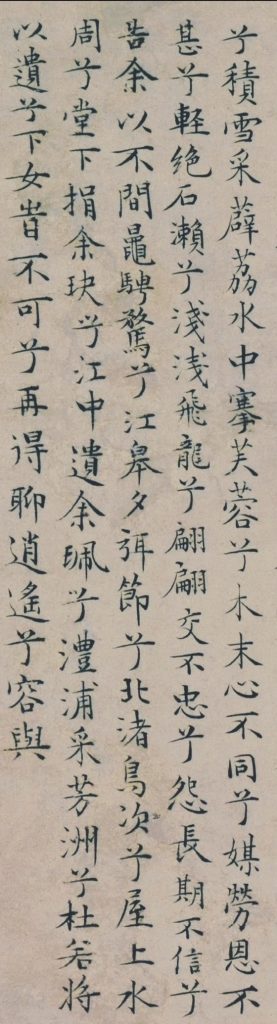 兮積雪采薜荔水中搴芙蓉兮木末心不同兮媒勞恩不
甚兮軽絶石瀨兮淺淺飛龍兮翩翩交不忠兮怨長期不信兮
告余以不間鼂騁騖兮江皋夕弭節兮北渚鳥次兮屋上水
周兮堂下捐余玦兮江中遺余珮兮澧浦采芳洲兮杜若將
以遺兮下女旹不可兮再得聊逍遙兮容與